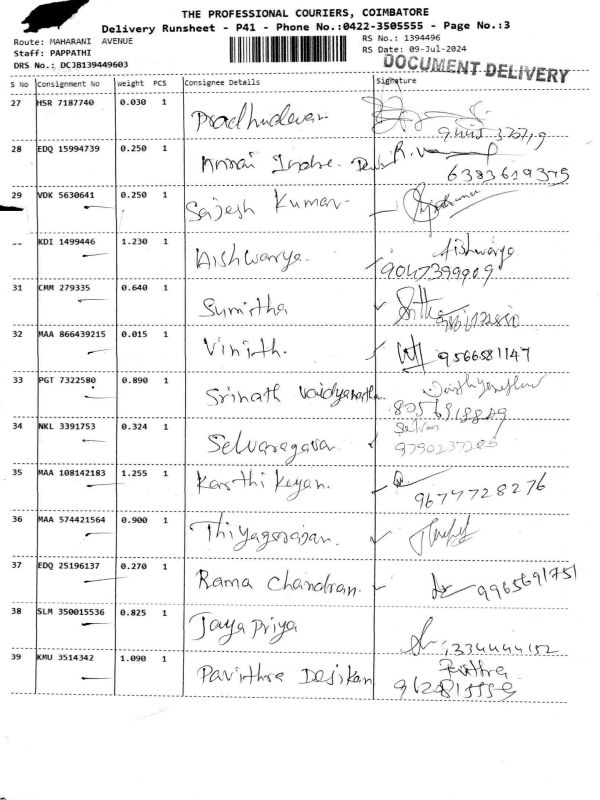 THE PROFESSIONAL COURIERS, COIMBATORE
Delivery Runsheet - P41 - Phone No.:0422-3505555 - Page No.:3
Route: MAHARANI AVENUE
RS No.: 1394496
Staff: PAPPATHI
RS Date: 09-Jul-2024
DRS No.: DCJB139449603
DOCUMENT DELIVERY
S No Consignment No Weight PCS Consignee Details Signature
27 HSR 7187740 0.030 1 Pradhudevan
28 EDQ 15994739 0.250 1 Annai Indra Devi
6383619375
29 VDK 5630641 0.250 1 Sajesh Kumar
KDI 1499446 1.230 1 Aishwarya Aishwarya
9047399909
31 CMM 279335 0.640 1 Sumitha
32 MAA 866439215 0.015 1 Vinith. 9566581147
33 PGT 7322580 0.890 1 Srinath Vaidyanathan
8056918849
34 NKL 3391753 0.324 1 Selvaragavan Selvan
35 MAA 108142183 1.255 1 Karthikeyan. 9677728276
36 MAA 574421564 0.900 1 Thiyagarajan.
37 EDQ 25196137 0.270 1 Rama Chandran. 9965691751
38 SLM 350015536 0.825 1 Jaya Priya
39 KMU 3514342 1.090 1 Pavithra Desikan